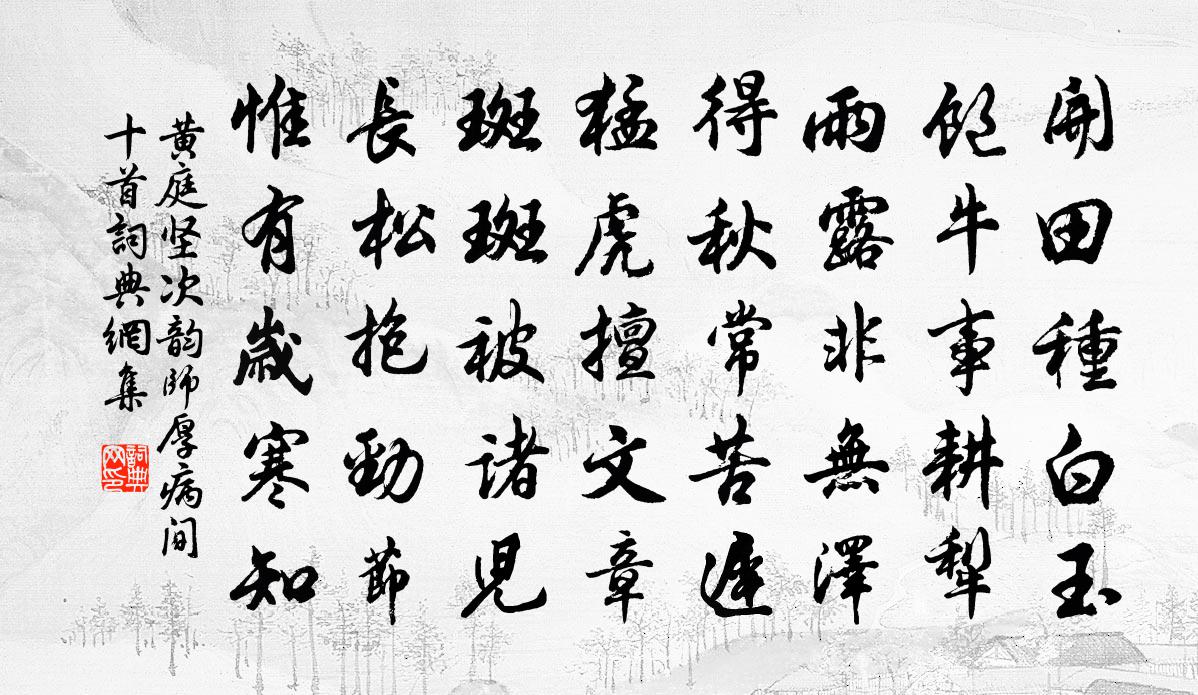 開田種白玉
飽牛事耕犁
雨露非無澤
得秋常苦遲
猛虎擅文章
斑斑被諸児
長松抱勁節
惟有歳寒知
黄庭坚次韵師厚病间
十首詞典網集
詞典网印